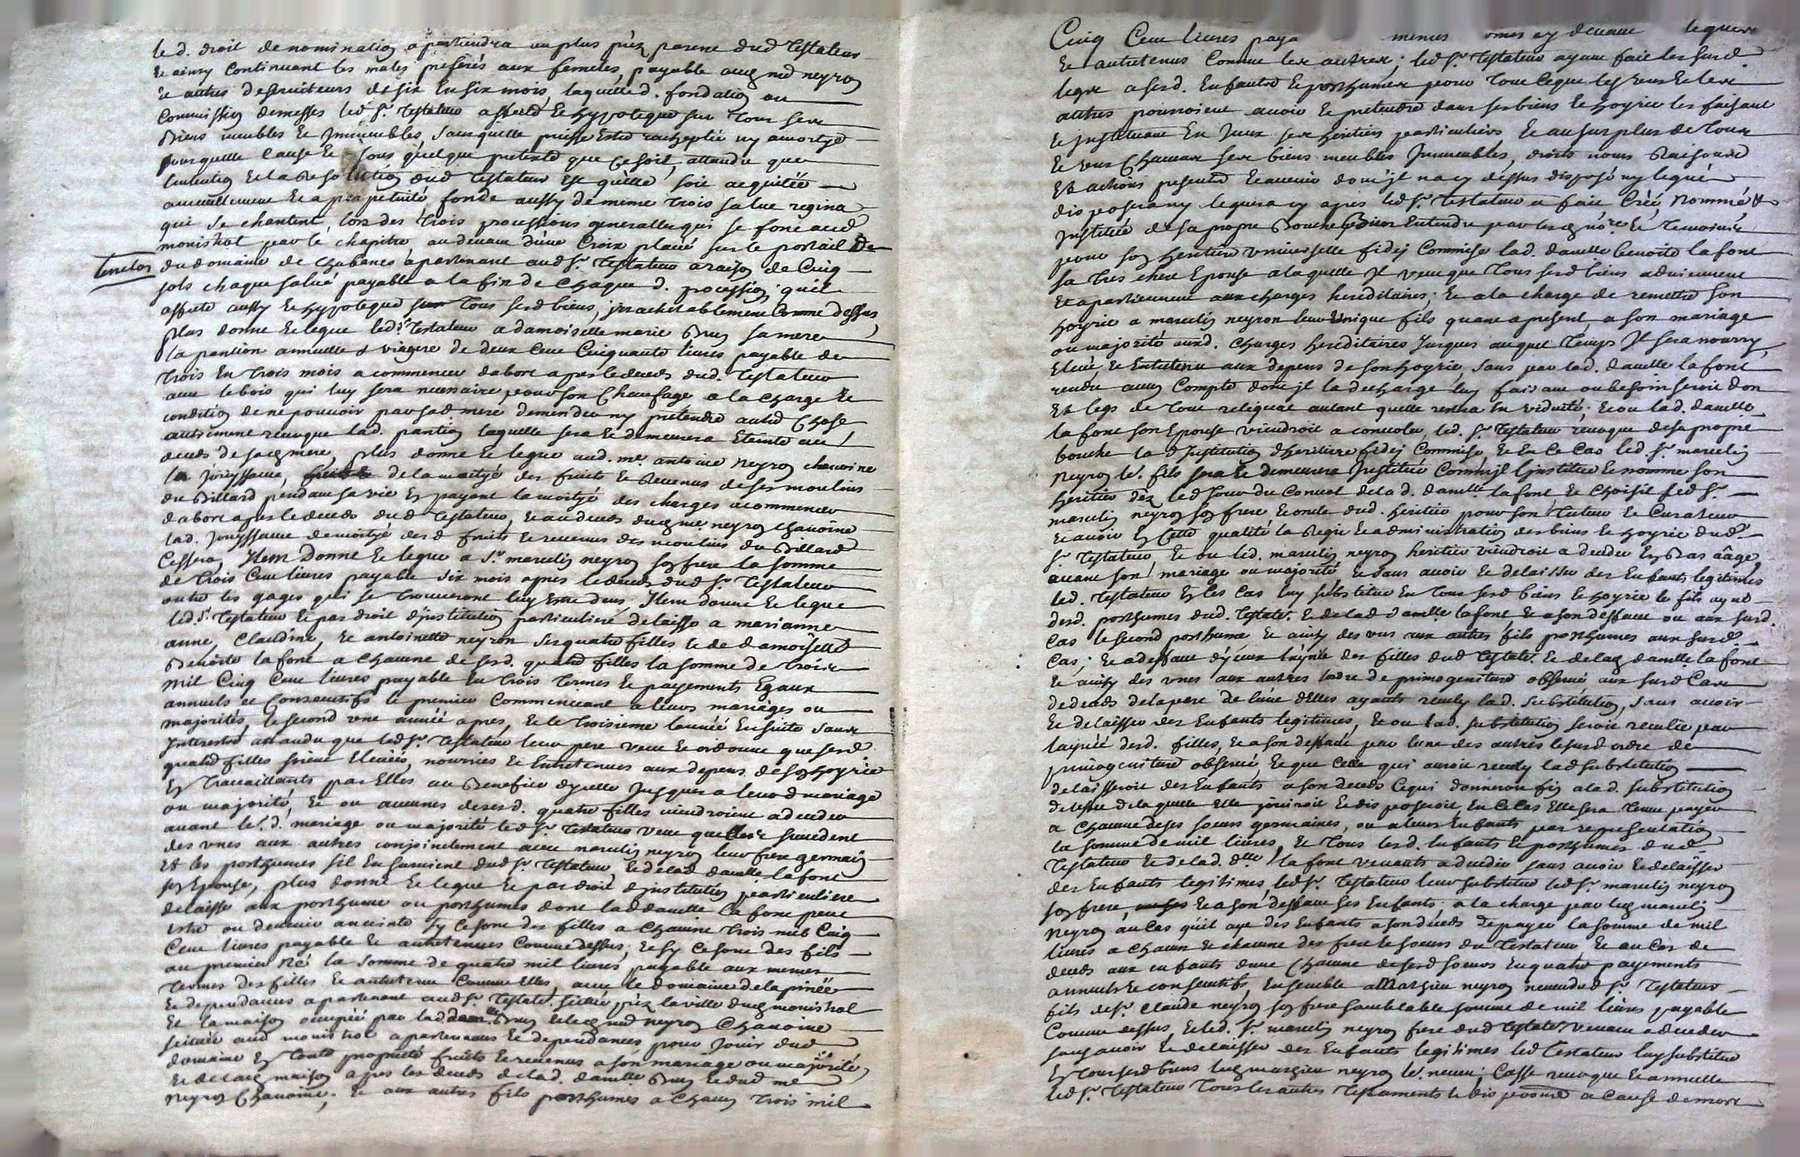 led. droit de nomination apartiendra au plus près parent dud testateur
Et ainsy Continuant les males preferés aux femeles, payable aud mre neyron
Et autres desserviteurs de six En six mois laquelle d. fondation ou
Commission de messes led. Sr. testateur affecte Et hypoteque sur tous ses
Biens meubles Et Immeubles, sans quelle puisse Estre racheptée ny amortye
pour quelle Cause Et sous quelque pretexte que Ce soit, attendu que
lintention Et la Resolution dud testateur Est quelle soit acquitée
annuellement Et a perpetuité fonde aussy de meme trois salve regina
qui se chantent lors des trois processions generalles qui se font aud
monistrol par le chapitre au devant dune Croix placée sur le portail
Enclos du domaine de Chabanes apartenant aud Sr. testateur a raison de Cinq
sols chaque salve payable a la fin de Chaque d. procession quil
affecte aussy Et hypoteque sur tous sesd biens, irrachetablement Comme dessus
plus donne Et legue led. testateur a damoiselle marie Bruy sa mere
la pantion annuelle & viagere de deux Cent Cinquante livres payable de
trois En trois mois a commencer dabort apres le deces dud. testateur
avec le bois qui luy sera necessaire pour son Chaufage a la Charge Et
condition de ne pouvoir par sad mere demander ny pretendre autre Chose
autrement revoque lad. pantion laquelle sera Et demeurera Eteinte au
deces de sad mere, plus donne Et legue aud. mre antoine neyron chanoine
la Jouyssance, de la moityé des fruits Et Revenus de ses moulins
du Billard pendant sa vie En payant la moityé des charges a commencer
dabort apres le deces dud testateur, Et au deces dud me neyron chanoine
lad. Jouyssance de moityé desd fruits Et revenus des moulins du Billard
Cessera, Item Donne Et legue a Sr. marcelin neyron son frere la somme
de trois Cent livres payable six mois apres le deces dud Sr. testateur
outre les gages qui se trouveront luy Etre deus, Item donne Et legue
led Sr. testateur Et par droit dinstitution particuliere delaisse a marianne
anne, Claudine, Et antoinette neyron ses quatre filles Et de damoiselle
Benoite la font a Chacune de sesd. quatre filles la somme de trois
mil Cinq Cent livres payable En trois termes Et payements Egaux
annuels et Consecutifs le premier Commencant a leurs mariages ou
majorités, le second une année apres, Et le troisieme lannée Ensuite sans
Interest attandu que led Sr. testateur leur pere veut Et ordonne que sesd
quatre filles soient Elevées, nourries Et Entretenues aux depens de son hoyrie
En travaillants par Elles au Benefice dycelle Jusques a leurd mariage
ou majorité, Et ou aucunes desesd. quatre filles viendroient a deceder
avant led. mariage ou majorité led Sr. testateur veut quelles se succedent
des unes aux autres conjointement avec marcelin neyron leur frere germain
Et les posthumes sil En survient dud Sr. testateur, Et de lad damelle la font
son Epouse, plus donne Et legue Et par droit dinstitution particuliere
delaisse aux posthume ou posthumes dont lad damelle la font peut
Estre ou devenir anceinte sy Ce sont des filles a Chacune trois mil Cinq
Cent livres payable Et entretenues Comme dessus, Et sy Ce sont des fils
au premier né la somme de quatre mil livres payable aux memes
termes des filles Et entretenu Comme Elles, avec le domaine de la pinée
Et dependances apartenant aud Sr. testatr. situé prez la ville dud monistrol
Et la maison occupée par lad dam. Bruy Et led me neyron Chanoine
scituée aud monistrol apartenances Et dependances pour Jouir dud
domaine En toute proprieté fruits Et revenus a son mariage ou majorité,
Et de lad maison apres les deces de lad. damelle Bruy Et dud me
neyron Chanoine, Et aux autres fils posthumes a Chacun trois mil
Cinq Cent livres paya memes ormes ey devant leguere
Et entretenus Comme les autres; led Sr. testateur ayant fait lesusd.
legs a sesd. Enfants Et posthumes pour tout Ceque les uns Et les
autres pourroient avoir Et pretendre dans ses biens Et hoyrie les faisant
Et Instituant En Iceux ses heritiers particuliers Et au surplus de tous
Et uns Chacuns ses biens meubles Immeubles, droits noms Raisons
Et actions presents Et avenir dont Il na cy dessus disposé ny legué
disposera ny leguera cy apres led Sr. testateur a fait Créé, nommé &
Institué de sa propre Bouche Bien Entendu par les no.re Et temoins
pour son heritiere universelle fideij Commise lad. damelle benoite la font
sa tres chere Epouse a laquelle Il veut que tous sesd biens advienent
Et apartiennent aux charges hereditaires; Et a la charge de remettre son
hoyrie a marcelin neyron leur unique fils quant a present, a son mariage
ou majorité auxd. Charges hereditaires Jusques auquel temps Il sera nourry,
Elevé Et Entretenu aux depens de son hoyrie, sans par lad. damelle la font
rendre aucun Compte dont Il la decharge luy faisant ou besoin seroit don
Et legs de tout reliquat autant quelle restra En viduité. Et ou lad. damelle
la font son Epouse viendroit a convoler led. Sr. testateur revoque desa propre
bouche la d Institution dheritiere fideij Commise, Et En Ce Cas led. Sr. marcelin
neyron led. fils sera Et demeurera Institué Comme Il linstitue Et nomme son
heritier dez led Jour du Convol de lad. damelle la font Et Choisit led Sr.
marcelin neyron son frere Et oncle dud. heritier pour son tuteur Et Curateur
Et avoir En Cette qualité la Regie Et administration des biens Et hoyrie dud.
Sr. testateur Et ou led. marcelin neyron heritier viendroit a deceder En Bas aâge,
avant son mariage ou majorité Et sans avoir Et delaisser des Enfants legitimes
led. testateur En les Cas luy substitue En tous sesd biens Et hoyrie le fils ayné
desd. posthumes dud. testatr. Et de lad damelle la font Et a son deffaut ou aux susd.
Cas le second posthume Et ainsy des uns aux autres fils posthumes aux susd
Cas; Et a deffaut dyceux laynée des filles dud testatr. Et de lad damelle la font
Et ainsy des unes aux autres lordre de primogeniture observé aux susd Cas
de deces de la part de lune delles ayants receuly lad. substitution, sans avoir
Et delaisser des Enfants legitimes, Et ou lad. substitution seroit receulie par
laynée desd. filles, Et a son deffaut par lune des autres le susd ordre de
primogeniture observé Et que Celle qui auroit receuly lad substitution
delaisseroit des Enfants a son deces Ce qui donneroit fin a lad. substitution
de laquelle Elle jouiroit Et disposeroit, En Ce Cas Elle sera tenue payer
a Chacune deses soeurs germaines, ou a leurs Enfants par representation
la somme de mil livres, Et tous lesd. Enfants Et posthumes dud
testateur Et de lad. dlle la font venants a deceder sans avoir Et delaisser
des Enfants legitimes, led Sr. testateur leur substitue led Sr. marcelin neyron
son frere, Et a son deffaut ses Enfants a la charge par led marcelin
neyron au Cas quil aye des Enfants a son deces de payer la somme de mil
livres a Chacun Et chacune des freres Et soeurs du testateur Et au Cas de
deces aux enfants dune Chacune desesd soeurs En quatre payements
annuels Et consecutifs, Ensemble a Mathieu neyron neveu dud Sr. testateur
fils de Sr. Claude neyron son frere semblable somme de mil livres payable
Comme dessus, Et led. Sr. marcelin neyron frere dud testatr. venant a deceder
sans avoir Et delaisser des Enfants legitimes led testateur luy substitue
En tous sesd biens led mathieu neyron led. neveu; Casse revoque Et annulle
led Sr. testateur tous les autres testaments Et dispositions a Cause de mort